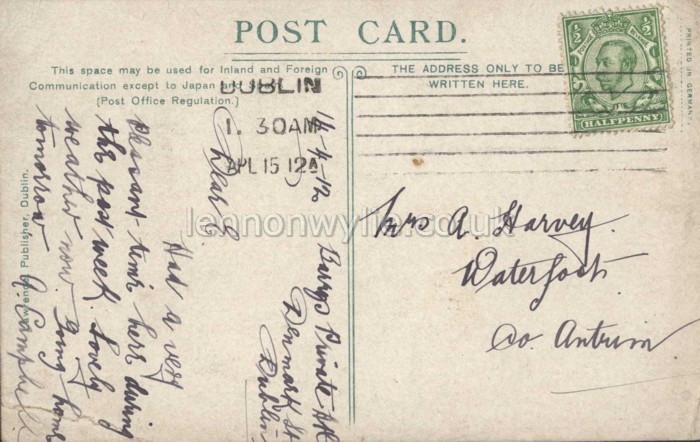 POST CARD.
This space may be used for Inland and Foreign
Communication except to Japan and
(Post Office Regulation.)
THE ADDRESS ONLY TO BE
WRITTEN HERE.
PRINTED IN GERMANY
½ ½
POSTAGE
HALFPENNY
DUBLIN
1. 30AM
APL 15 12
14-4-12
Barrys Private Htl
Denmark St
Dublin
Dear E.
Had a very
pleasant time here during
the past week. Lovely
weather now. Going home
tomorrow
J. Campbell
Mrs A. Harvey.
Waterfoot.
Co. Antrim
Lawrence, Publisher, Dublin.
lennonwylie.co.uk